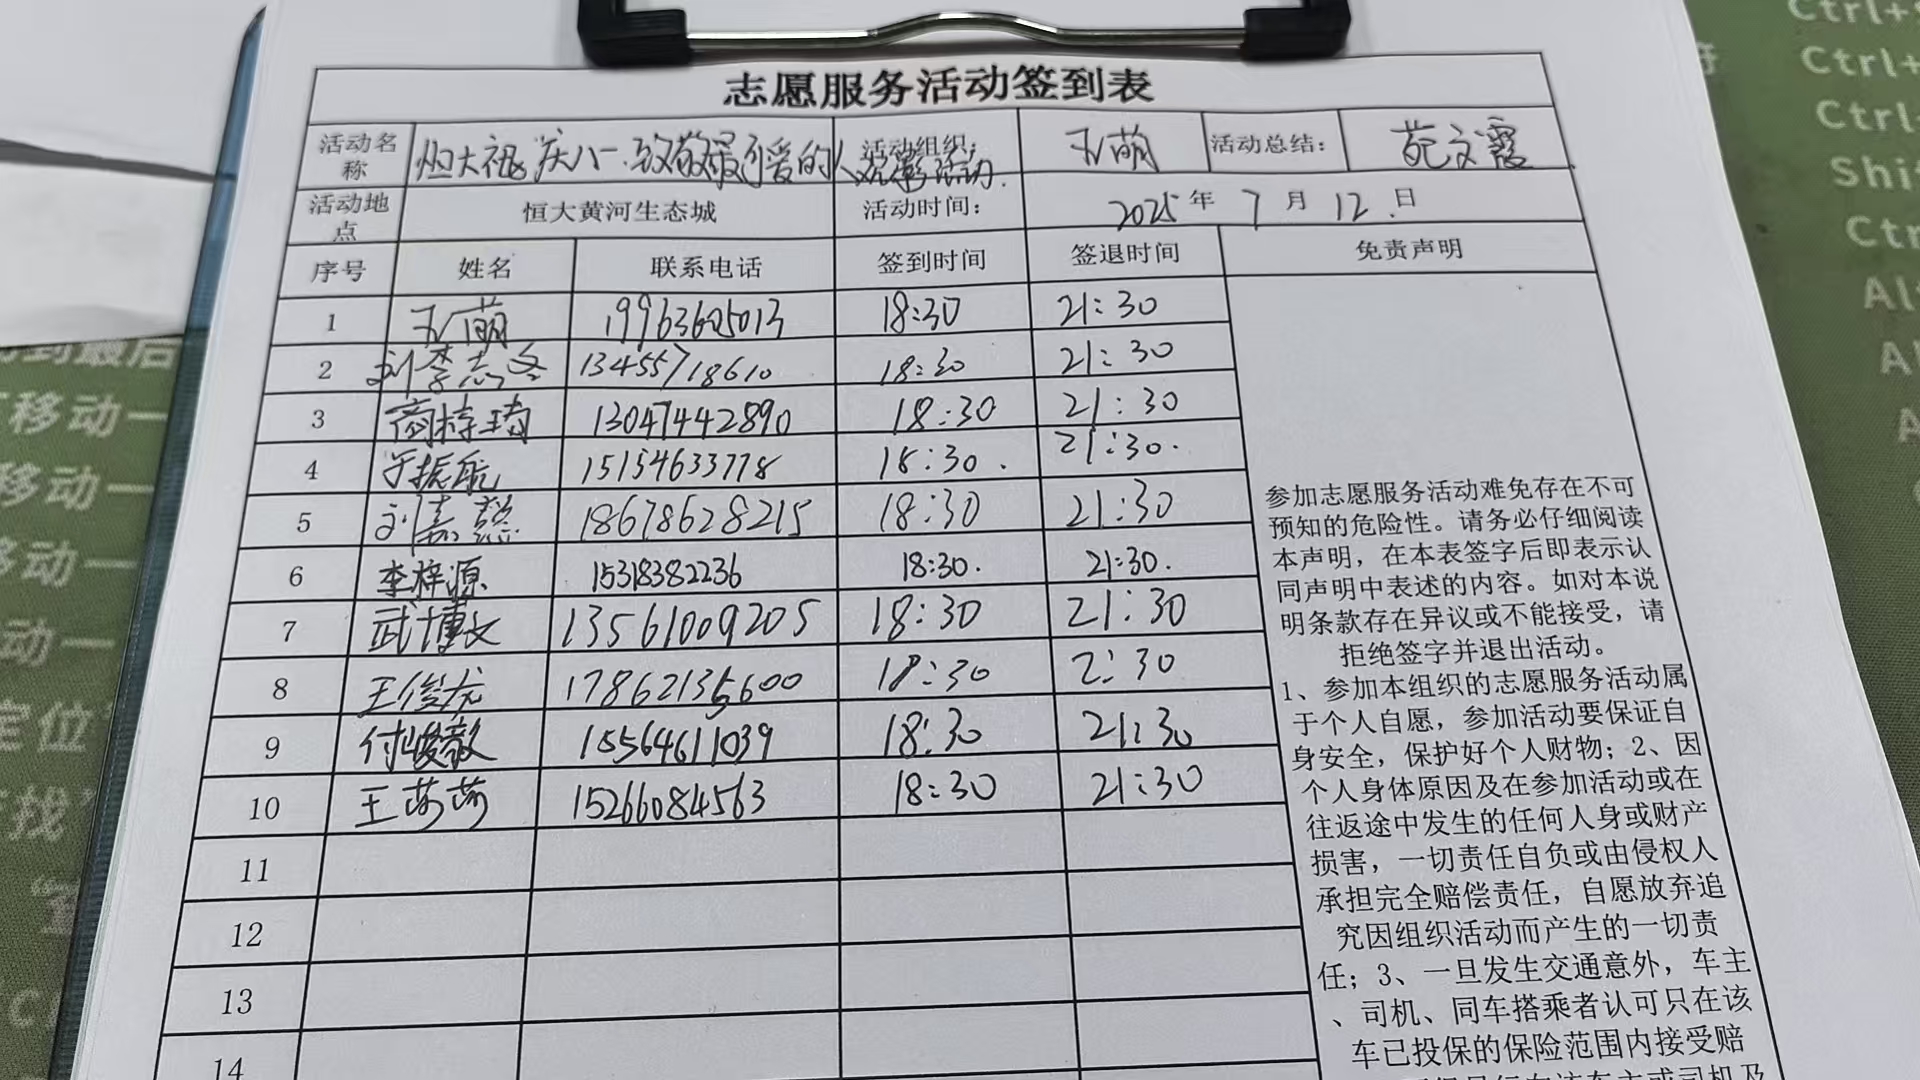 志愿服务活动签到表
活动名称 恒大社 庆八一.致敬最可爱的人观影活动. 活动组织: 王萌 活动总结: 苑文霞
活动地点 恒大黄河生态城 活动时间: 2025年 7月 12.日
序号 姓名 联系电话 签到时间 签退时间 免责声明
1 王萌 19963605013 18:30 21:30
2 刘李志冬 13455718610 18:30 21:30
3 商梓琦 13047442890 18:30 21:30
4 于振航 15154633778 18:30. 21:30.
5 刘嘉懿 18678628215 18:30 21:30
6 李梓源 15318382236 18:30. 21:30.
7 武博文 13561009205 18:30 21:30
8 王俊龙 17862135600 18:30 2:30
9 付峻敬 15564611039 18:30 21:30
10 王莎莎 15266084563 18:30 21:30
11
12
13
14
参加志愿服务活动难免存在不可
预知的危险性。请务必仔细阅读
本声明，在本表签字后即表示认
同声明中表述的内容。如对本说
明条款存在异议或不能接受，请
拒绝签字并退出活动。
1、参加本组织的志愿服务活动属
于个人自愿，参加活动要保证自
身安全，保护好个人财物；2、因
个人身体原因及在参加活动或在
往返途中发生的任何人身或财产
损害，一切责任自负或由侵权人
承担完全赔偿责任，自愿放弃追
究因组织活动而产生的一切责
任；3、一旦发生交通意外，车主
、司机、同车搭乘者认可只在该
车已投保的保险范围内接受赔
Ctrl+
Ctrl+
Ctrl+
Shif
Ctr
Alt
移动一
移动一
移动一
动一
定位
找